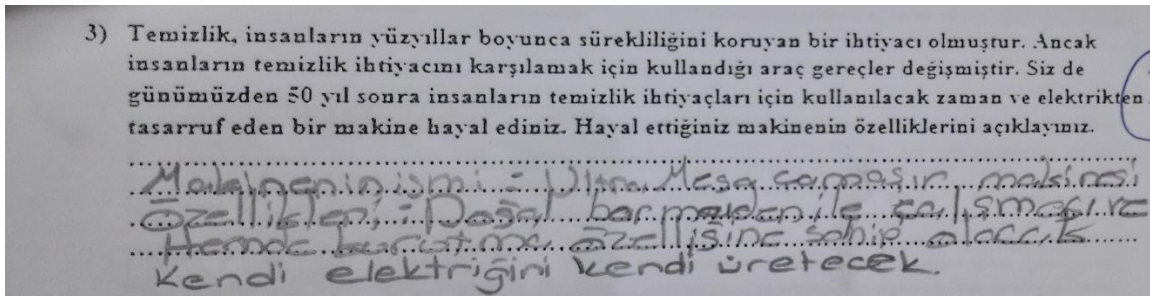 3) Temizlik, insanların yüzyıllar boyunca sürekliliğini koruyan bir ihtiyacı olmuştur. Ancak
insanların temizlik ihtiyacını karşılamak için kullandığı araç gereçler değişmiştir. Siz de
günümüzden 50 yıl sonra insanların temizlik ihtiyaçları için kullanılacak zaman ve elektrikten
tasarruf eden bir makine hayal ediniz. Hayal ettiğiniz makinenin özelliklerini açıklayınız.
Makinenin ismi: Ultra Mega çamaşır makinesi
Özellikleri: Doğal ile çalışması ve
Hemde kurutma özelliğine sahip olacak
Kendi elektriğini kendi üretecek.